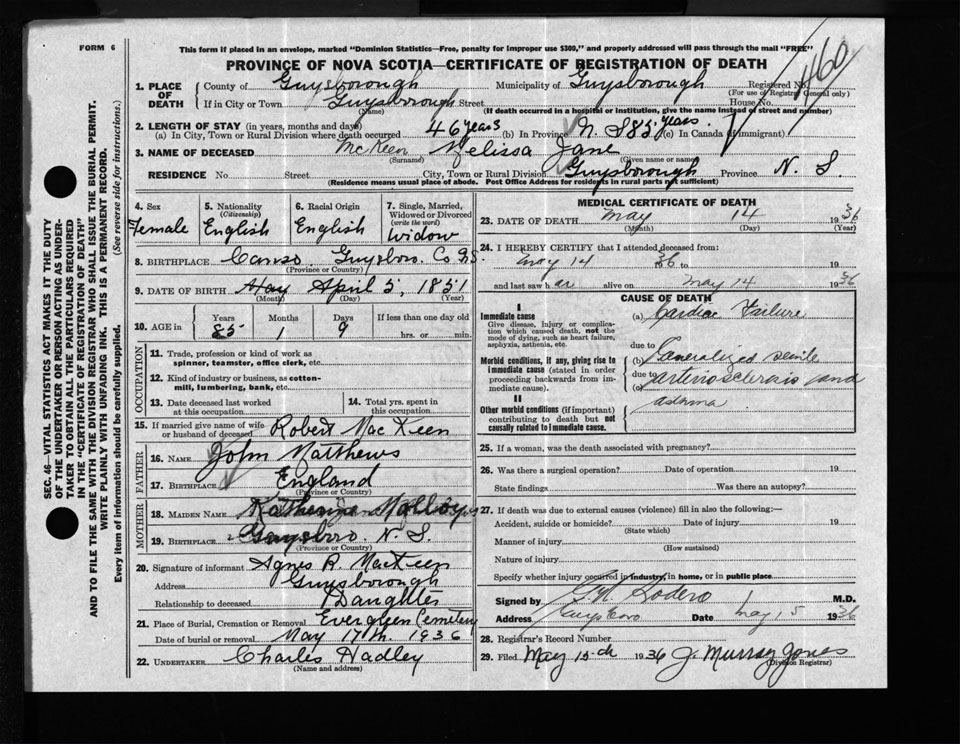 FORM 6
This form if placed in an envelope, marked "Dominion Statistics—Free, penalty for improper use $300," and properly addressed will pass through the mail "FREE"
PROVINCE OF NOVA SCOTIA—CERTIFICATE OF REGISTRATION OF DEATH
1. PLACE OF DEATH
County of Guysborough Municipality of Guysborough Registered No. 460
(For use of Registrar General only)
If in City or Town Guysborough Street House No.
(Name) (If death occurred in a hospital or institution, give the name instead of street and number)
2. LENGTH OF STAY (in years, months and days)
(a) In City, Town or Rural Division where death occurred 46 years (b) In Province N. S 85 years. (c) In Canada (if immigrant)
3. NAME OF DECEASED McKeen Melissa Jane
(Surname) (Given name or name)
RESIDENCE No. Street City, Town or Rural Division Guysborough Province N. S
(Residence means usual place of abode. Post Office Address for residents in rural parts not sufficient)
4. Sex Female
5. Nationality (Citizenship) English
6. Racial Origin English
7. Single, Married, Widowed or Divorced (write the word) Widow
8. BIRTHPLACE Canso, Guysboro. Co N.S.
(Province or Country)
9. DATE OF BIRTH May April 5, 1851
(Month) (Day) (Year)
10. AGE in Years Months Days If less than one day
85 1 9 hrs. or min.
OCCUPATION
11. Trade, profession or kind of work as spinner, teamster, office clerk, etc.
12. Kind of industry or business, as cotton-mill, lumbering, bank, etc.
13. Date deceased last worked at this occupation
14. Total yrs. spent in this occupation
15. If married give name of wife or husband of deceased Robert MacKeen
FATHER
16. NAME John Matthews
17. BIRTHPLACE England
(Province or Country)
MOTHER
18. MAIDEN NAME Katherine Malloy
19. BIRTHPLACE Guysboro. N. S.
(Province or Country)
20. Signature of informant Agnes R. MacKeen
Address Guysborough
Relationship to deceased Daughter
21. Place of Burial, Cremation or Removal Evergreen Cemetery
Date of burial or removal May 17th. 1936
22. UNDERTAKER Charles Hadley
(Name and address)
MEDICAL CERTIFICATE OF DEATH
23. DATE OF DEATH May 14 1936
(Month) (Day) (Year)
24. I HEREBY CERTIFY that I attended deceased from:
May 14 1936 to 19
and last saw h er alive on May 14 1936
CAUSE OF DEATH
I
Immediate cause
Give disease, injury or complication which caused death, not the mode of dying, such as heart failure, asphyxia, asthenia, etc.
(a) Cardiac Failure
due to
Morbid conditions, if any, giving rise to immediate cause (stated in order proceeding backwards from immediate cause).
Generalized senile
due to
(c) arteriosclerosis and
asthma
II
Other morbid conditions (if important) contributing to death but not causally related to immediate cause.
25. If a woman, was the death associated with pregnancy?
26. Was there a surgical operation? Date of operation 19
State findings Was there an autopsy?
27. If death was due to external causes (violence) fill in also the following:—
Accident, suicide or homicide? Date of injury 19
(State which)
Manner of injury
(How sustained)
Nature of injury
Specify whether injury occurred in industry, in home, or in public place
Signed by M.D.
Address Guysboro Date May 15 1936
28. Registrar's Record Number
29. Filed May 15th 1936 J. Murray Jones
(Division Registrar)
SEC. 46—VITAL STATISTICS ACT MAKES IT THE DUTY
OF THE UNDERTAKER OR PERSON ACTING AS UNDER-
TAKER TO OBTAIN ALL THE PARTICULARS REQUIRED
IN THE "CERTIFICATE OF REGISTRATION OF DEATH"
AND TO FILE THE SAME WITH THE DIVISION REGISTRAR WHO SHALL ISSUE THE BURIAL PERMIT.
WRITE PLAINLY WITH UNFADING INK. THIS IS A PERMANENT RECORD.
Every item of information should be carefully supplied. (See reverse side for instructions.)